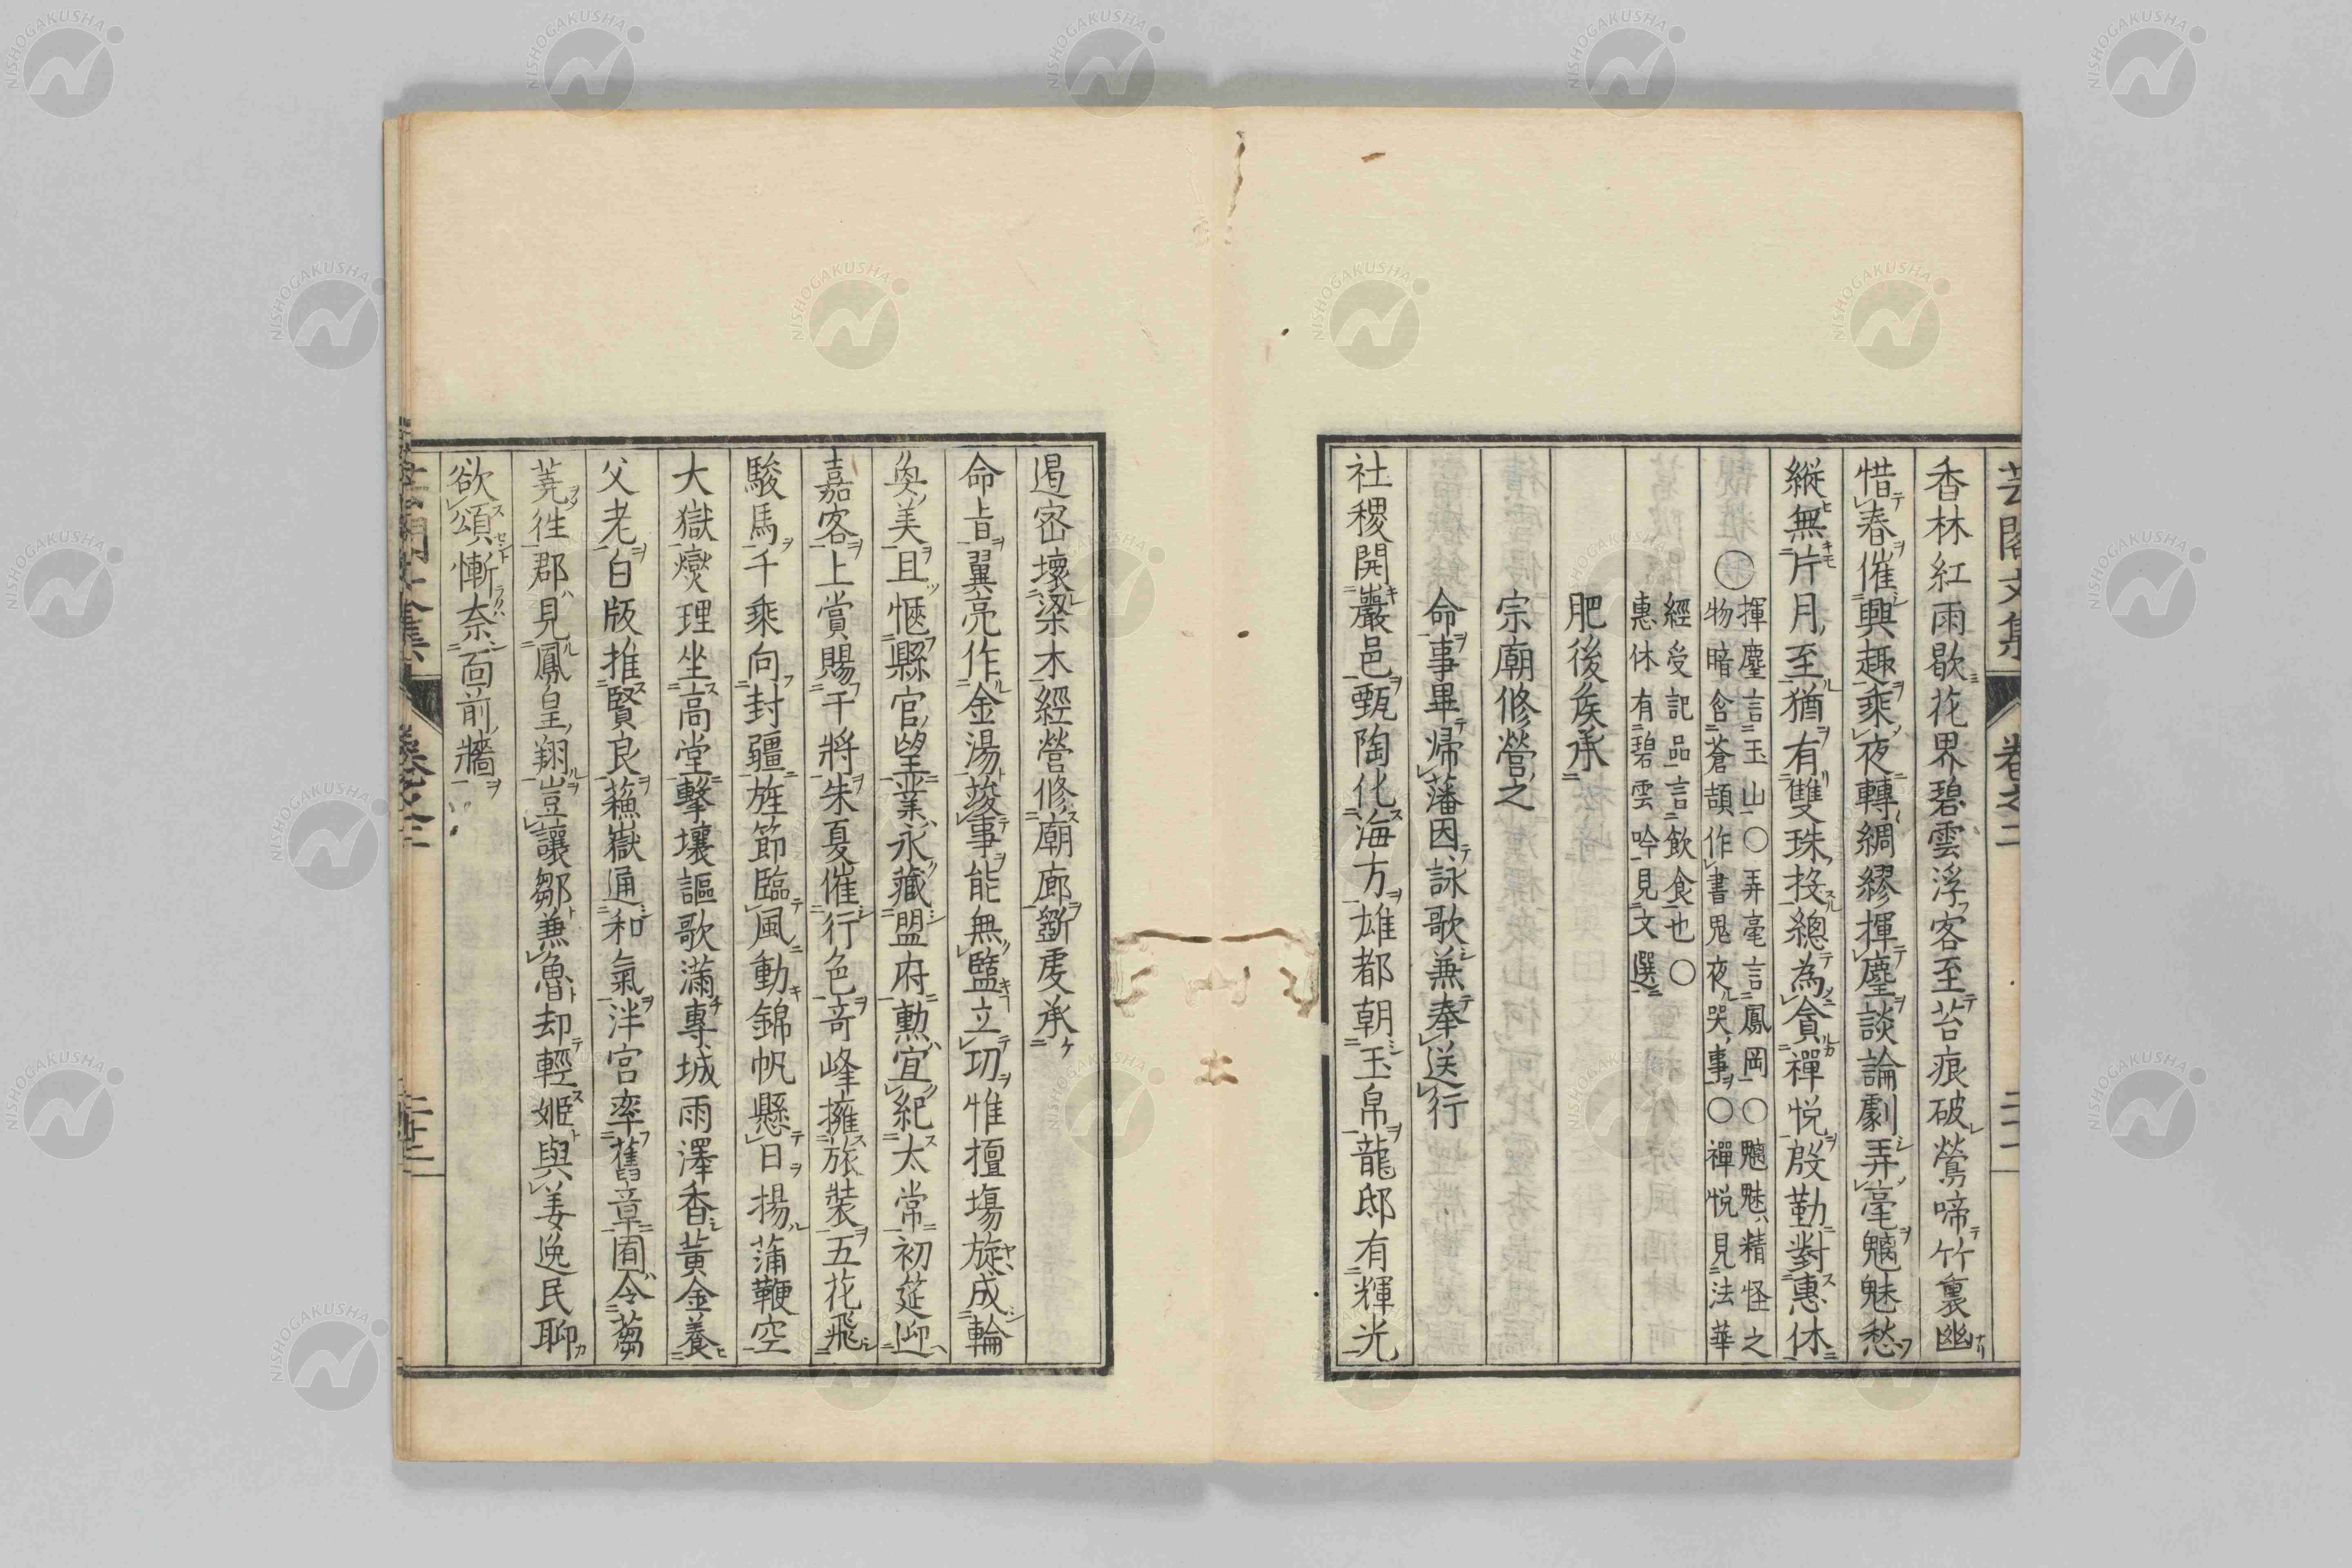 芸閣文集 卷之二 二十一
香林紅雨歇花界碧雲浮客至苔痕破鶯啼竹裏幽
惜春催興趣乘夜轉綢繆揮麈談論劇弄毫魑魅愁
縱無片月至猶有雙珠投總為貪禪悅殷勤對惠休
○揮麈言玉山○弄毫言鳳岡○魑魅精怪之
物暗含蒼頡作書鬼夜哭事○禪悅見法華
經受記品言飲食也○
惠休有碧雲吟見文選
肥後矦承
宗廟修營之
命事畢歸藩因詠歌兼奉送行
社稷開巖邑甄陶化海方雄都朝玉帛龍邸有輝光
遏密壞梁木經營修廟廊斵虔承
命旨翼亮作金湯竣事能無監立切惟擅場旋成輪
奐美且愜縣官望業永藏盟府勳宜紀太常初筵迎
嘉客上賞賜干將朱夏催行色奇峰擁旅裝五花飛
駿馬千乘向封疆旌節臨風動錦帆懸日揚蒲鞭空
大獄燮理坐高堂擊壤謳歌滿專城雨澤香黃金養
父老白版推賢良蘓嶽通和氣泮宮率舊章圄令蒭
蕘徃郡見鳳皇翔豈讓鄒兼魯却輕姬與姜逸民聊
欲頌慚奈面前牆
卷之二 二十二
NISHOGAKUSHA